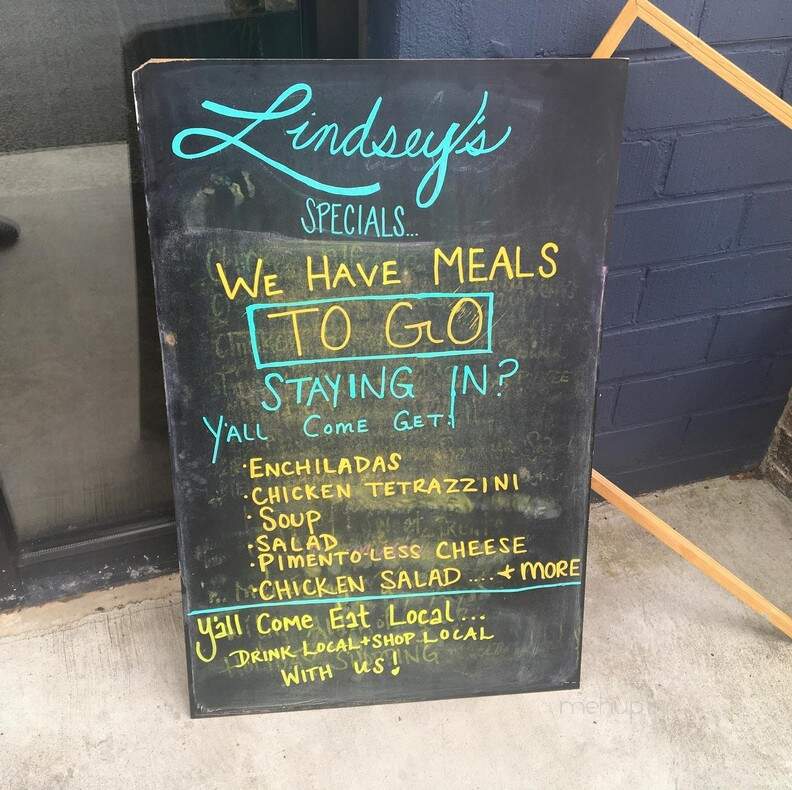 Lindsey's
SPECIALS...
WE HAVE MEALS
TO GO
STAYING IN?
Y'ALL COME GET:
·ENCHILADAS
·CHICKEN TETRAZZINI
·SOUP
·SALAD
·PIMENTO-LESS CHEESE
·CHICKEN SALAD .... + MORE
Y'all Come Eat Local...
DRINK LOCAL + SHOP LOCAL
WITH US!